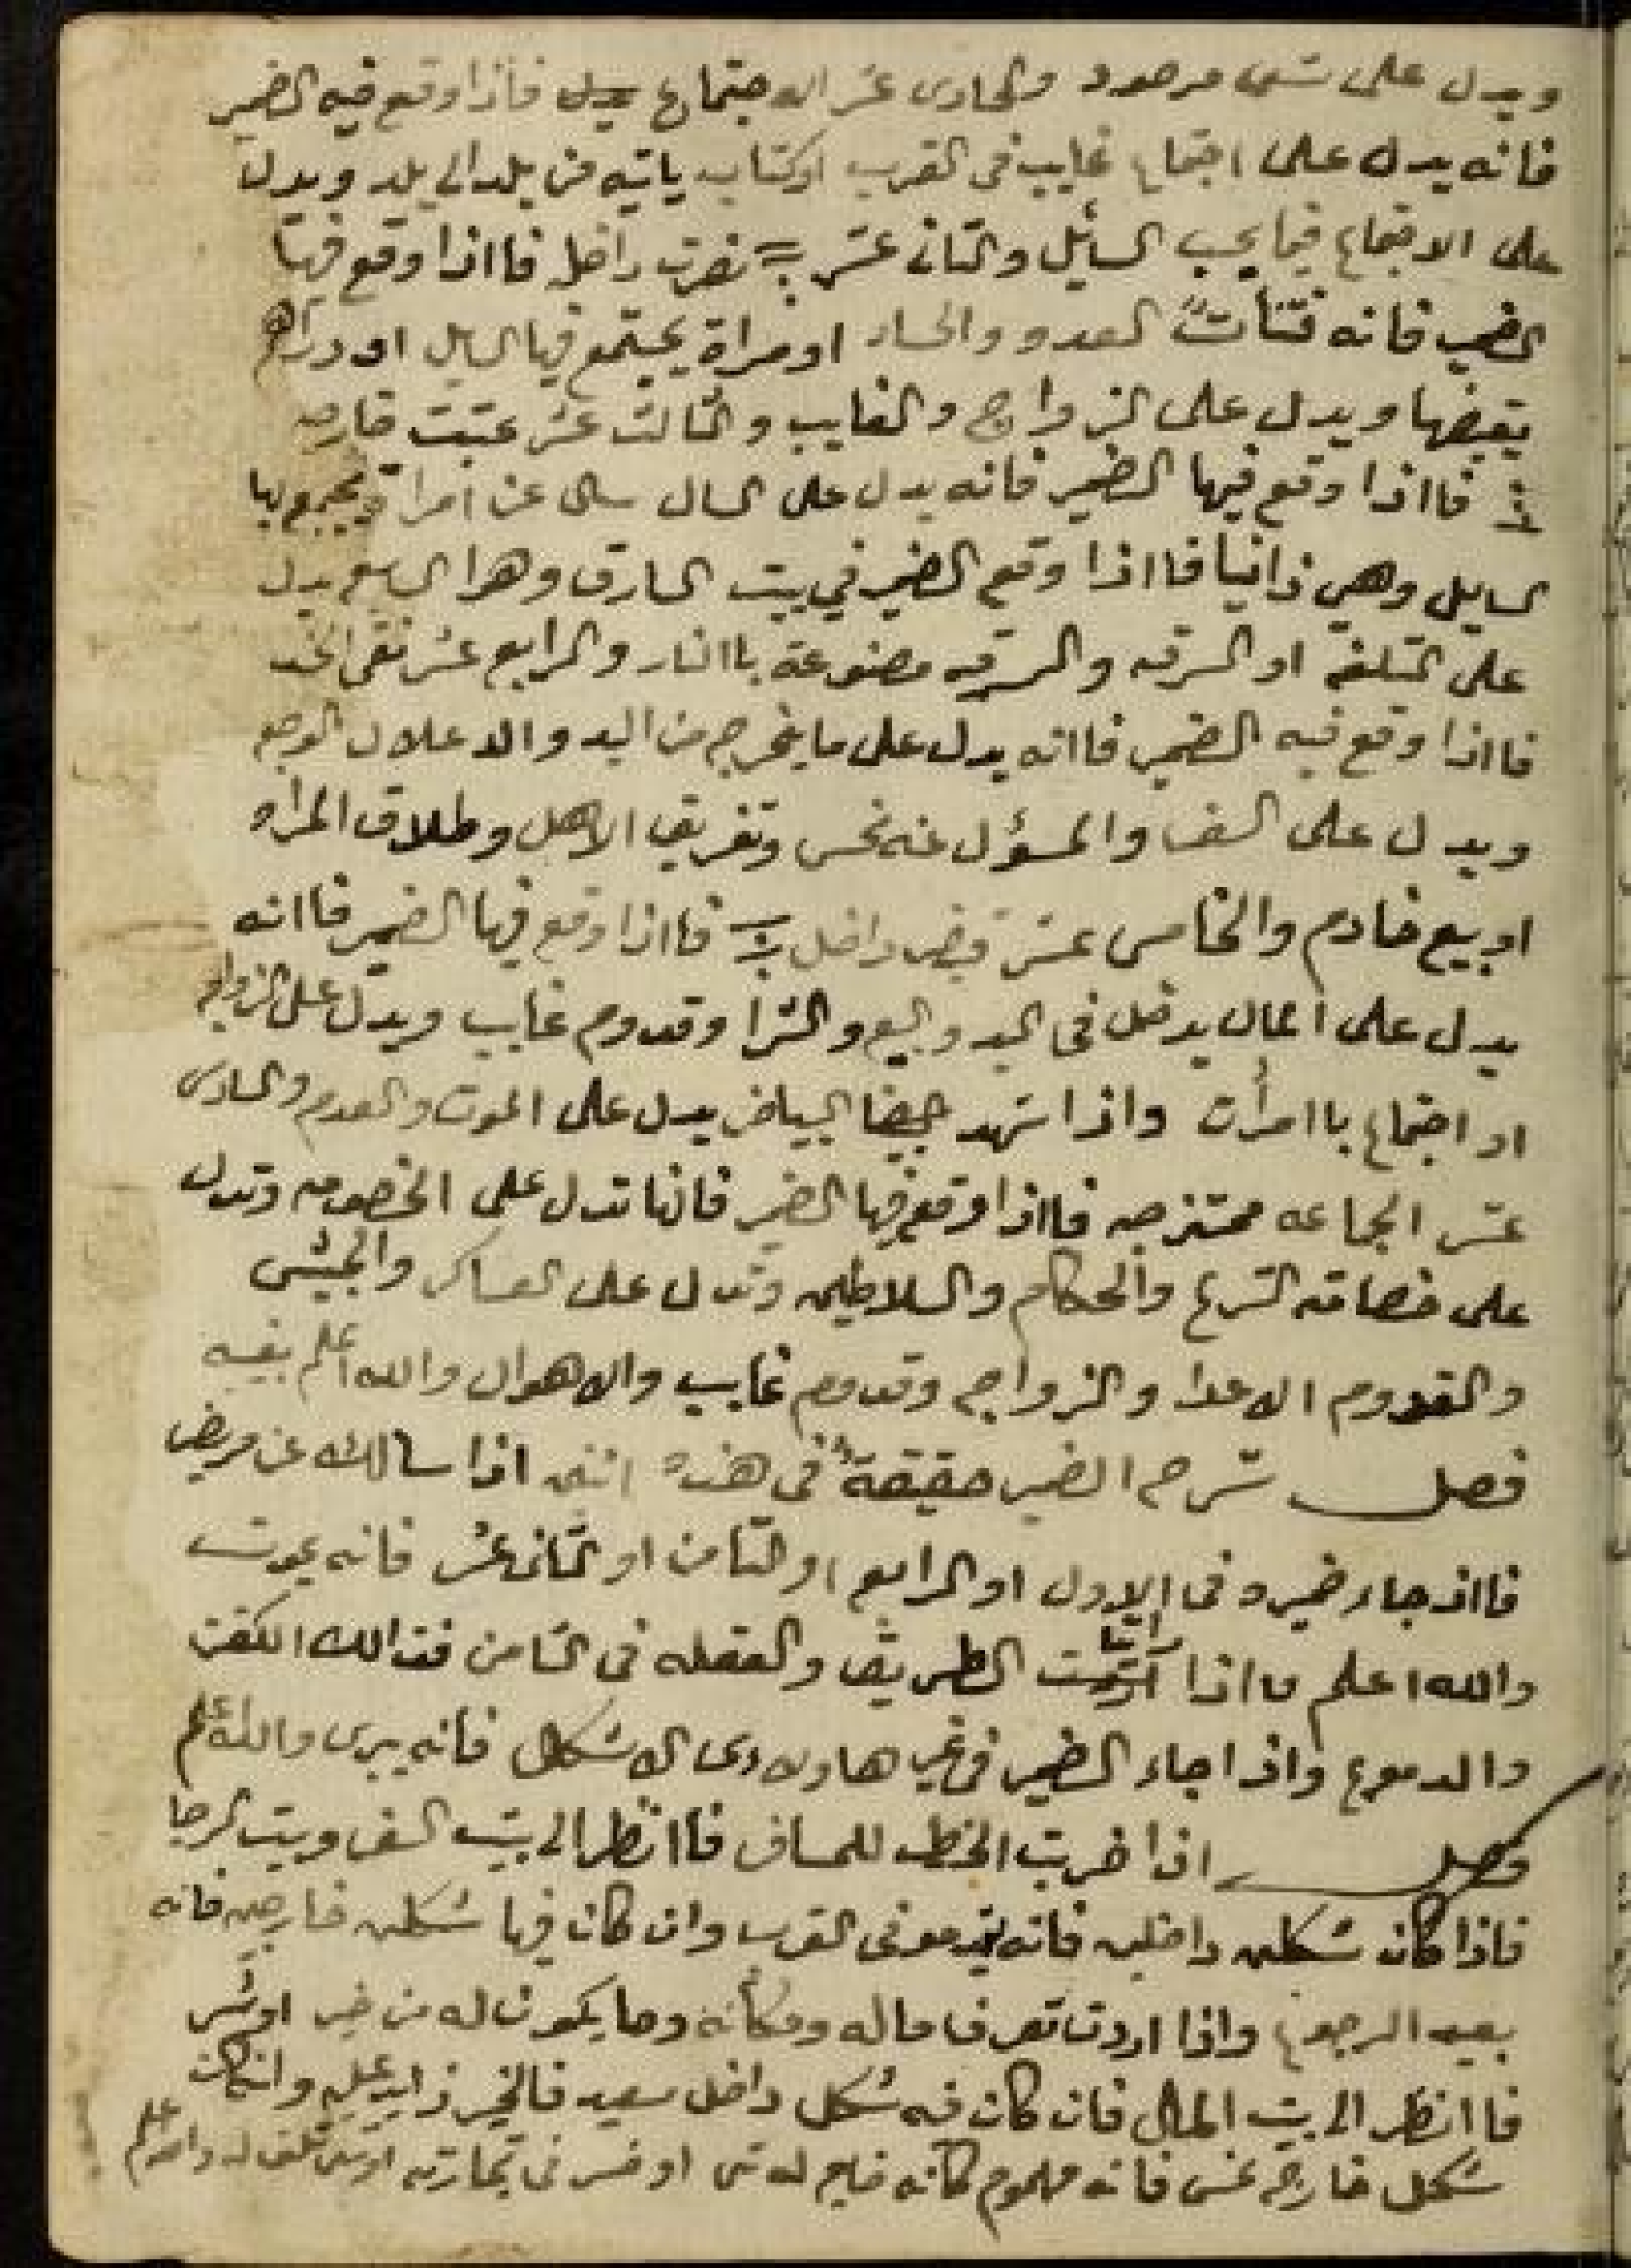 ويدل على شى مرصود والحادى عشر الاجتماع فاذا وقع فيه الضمير
فانه يدل على اجتماع غايب فى القرب اوكتاب ياتيه من بلد الى بلد ويدل
على الاجتماع فيما يحب السائل والثانى عشر نصرت داخل فااذا وقع فيها
الضمير فانه العدو والحساد او مراة يجتمع فيها السايل او دراهم
يقبضها ويدل على الزواج والغايب والثالث عشر عتبت خارجه
فااذا وقع فيها الضمير فانه يدل على السال سال عن امراة يجتمع بها
السايل وهي زانيا فااذا وقع الضمير في بيت السارق وهوا السابع يدل
على التلفه او السرقه والسرقه مصنوعة باالنار والرابع عشر نقى الخد
فااذا وقع فيه الضمير فاانه يدل على مايخرج من اليد والاعلال الوجع
ويدل على السفر والمسؤل عنه نحس وتفريق الاهل وطلاق المراه
او بيع خادم والخامس عشر قبض داخل فااذا وقع فيها الضمير فاانه
يدل على المال يدخل فى اليد والبيع والشرا وقدوم غايب ويدل على الزواج
او اجتماع باامرأت واذا شهد البياض يدل على الموت والعدم والسادس
عشر الجماعه ممتزجه فااذا وقع فيها الضمير فانها تدل على الخصومه وتدل
على الشرع والحكام والسلاطين وتدل على العساكر والجيش
والقدوم الاعدا والزواج وقدوم غايب والاهوال والله اعلم بغيبه
فصل شرح الضمير حقيقة فى هذه اذا سالك عن مريض
فااذ جاء ضميره فى الاول او الرابع او الثامن او الثانى عشر فانه يموت
والله اعلم فااذا الطريق والعقله فى الثامن فذالك الكفن
والدموع واذا جاء الضمير فى غير هاولاى الاشكال فانه يبرى والله اعلم
فصل اذا ضربت الخط للمسافر فاانظر الى بيت السفر وبيت الرجا
فاذا كان شكلين داخلين فانه فى القرب وان كان فيها شكلين خارجين فانه
بعيد الرجوع واذا اردت تعرف ماله ومكانه ومايكون له من خير او شر
فاانظر الى بيت المال فان كان فيه شكل داخل سعيد فالخير زايد عليه وانكان
شكل خارج نحس فانه مهموم كانه ضايع له شى او خسر فى تجارته او شى تلف له والله اعلم